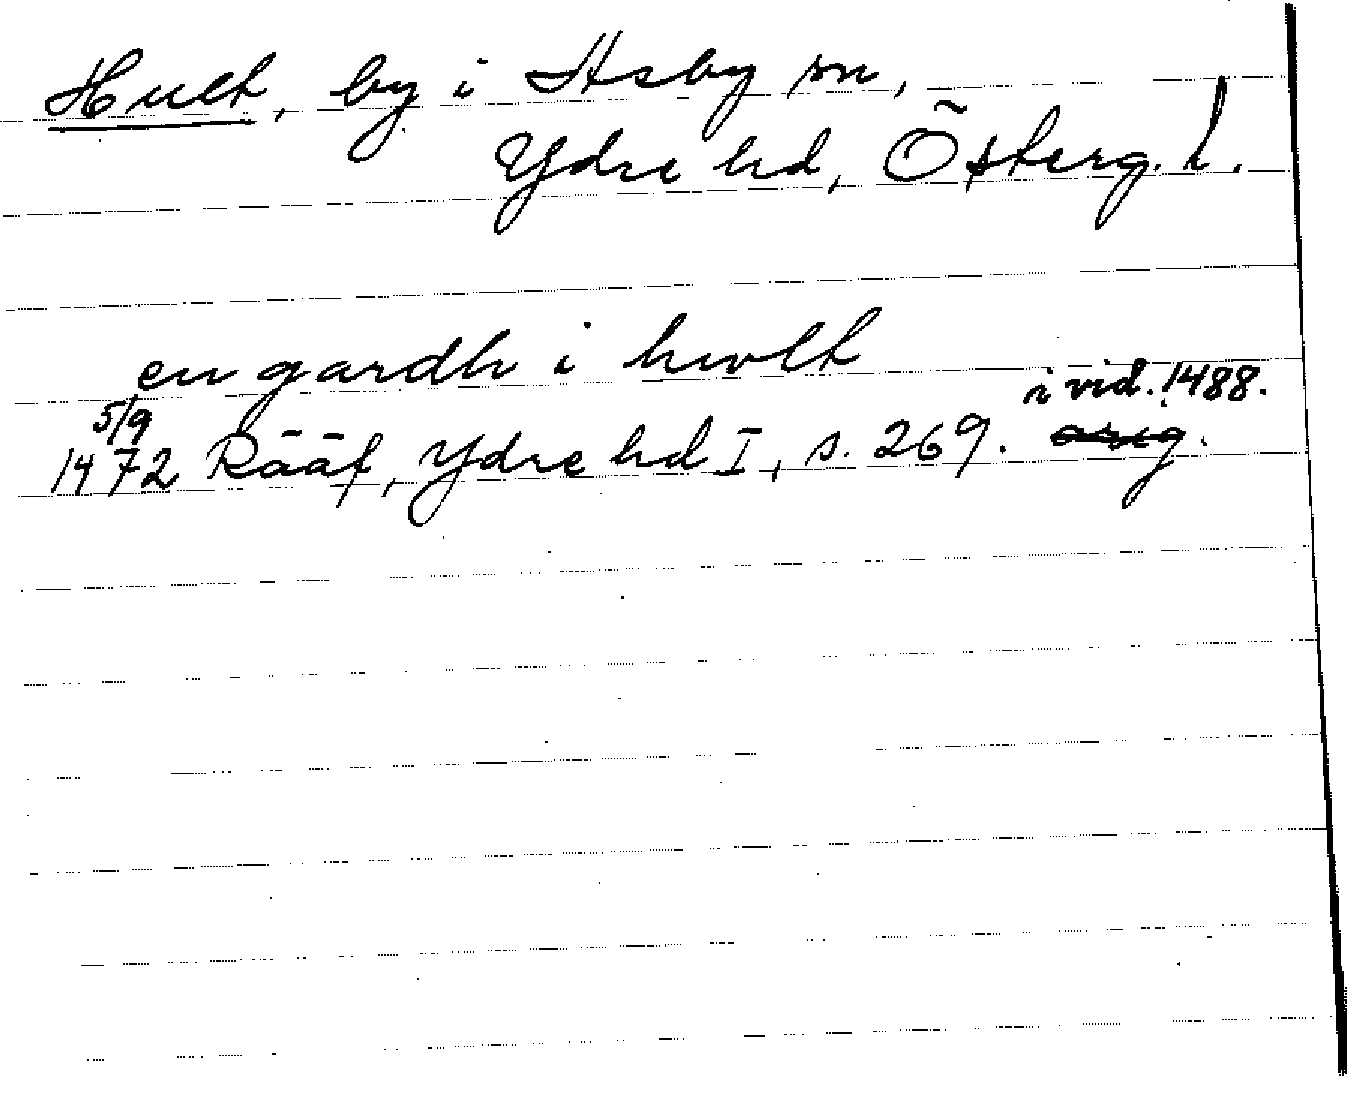 Hult, by i Asby sn,
Ydre hd, Österg. l.
en gardh i hwlt
i vid. 1488.
5/9
1472 Rääf, Ydre hd I, s. 269. orig.